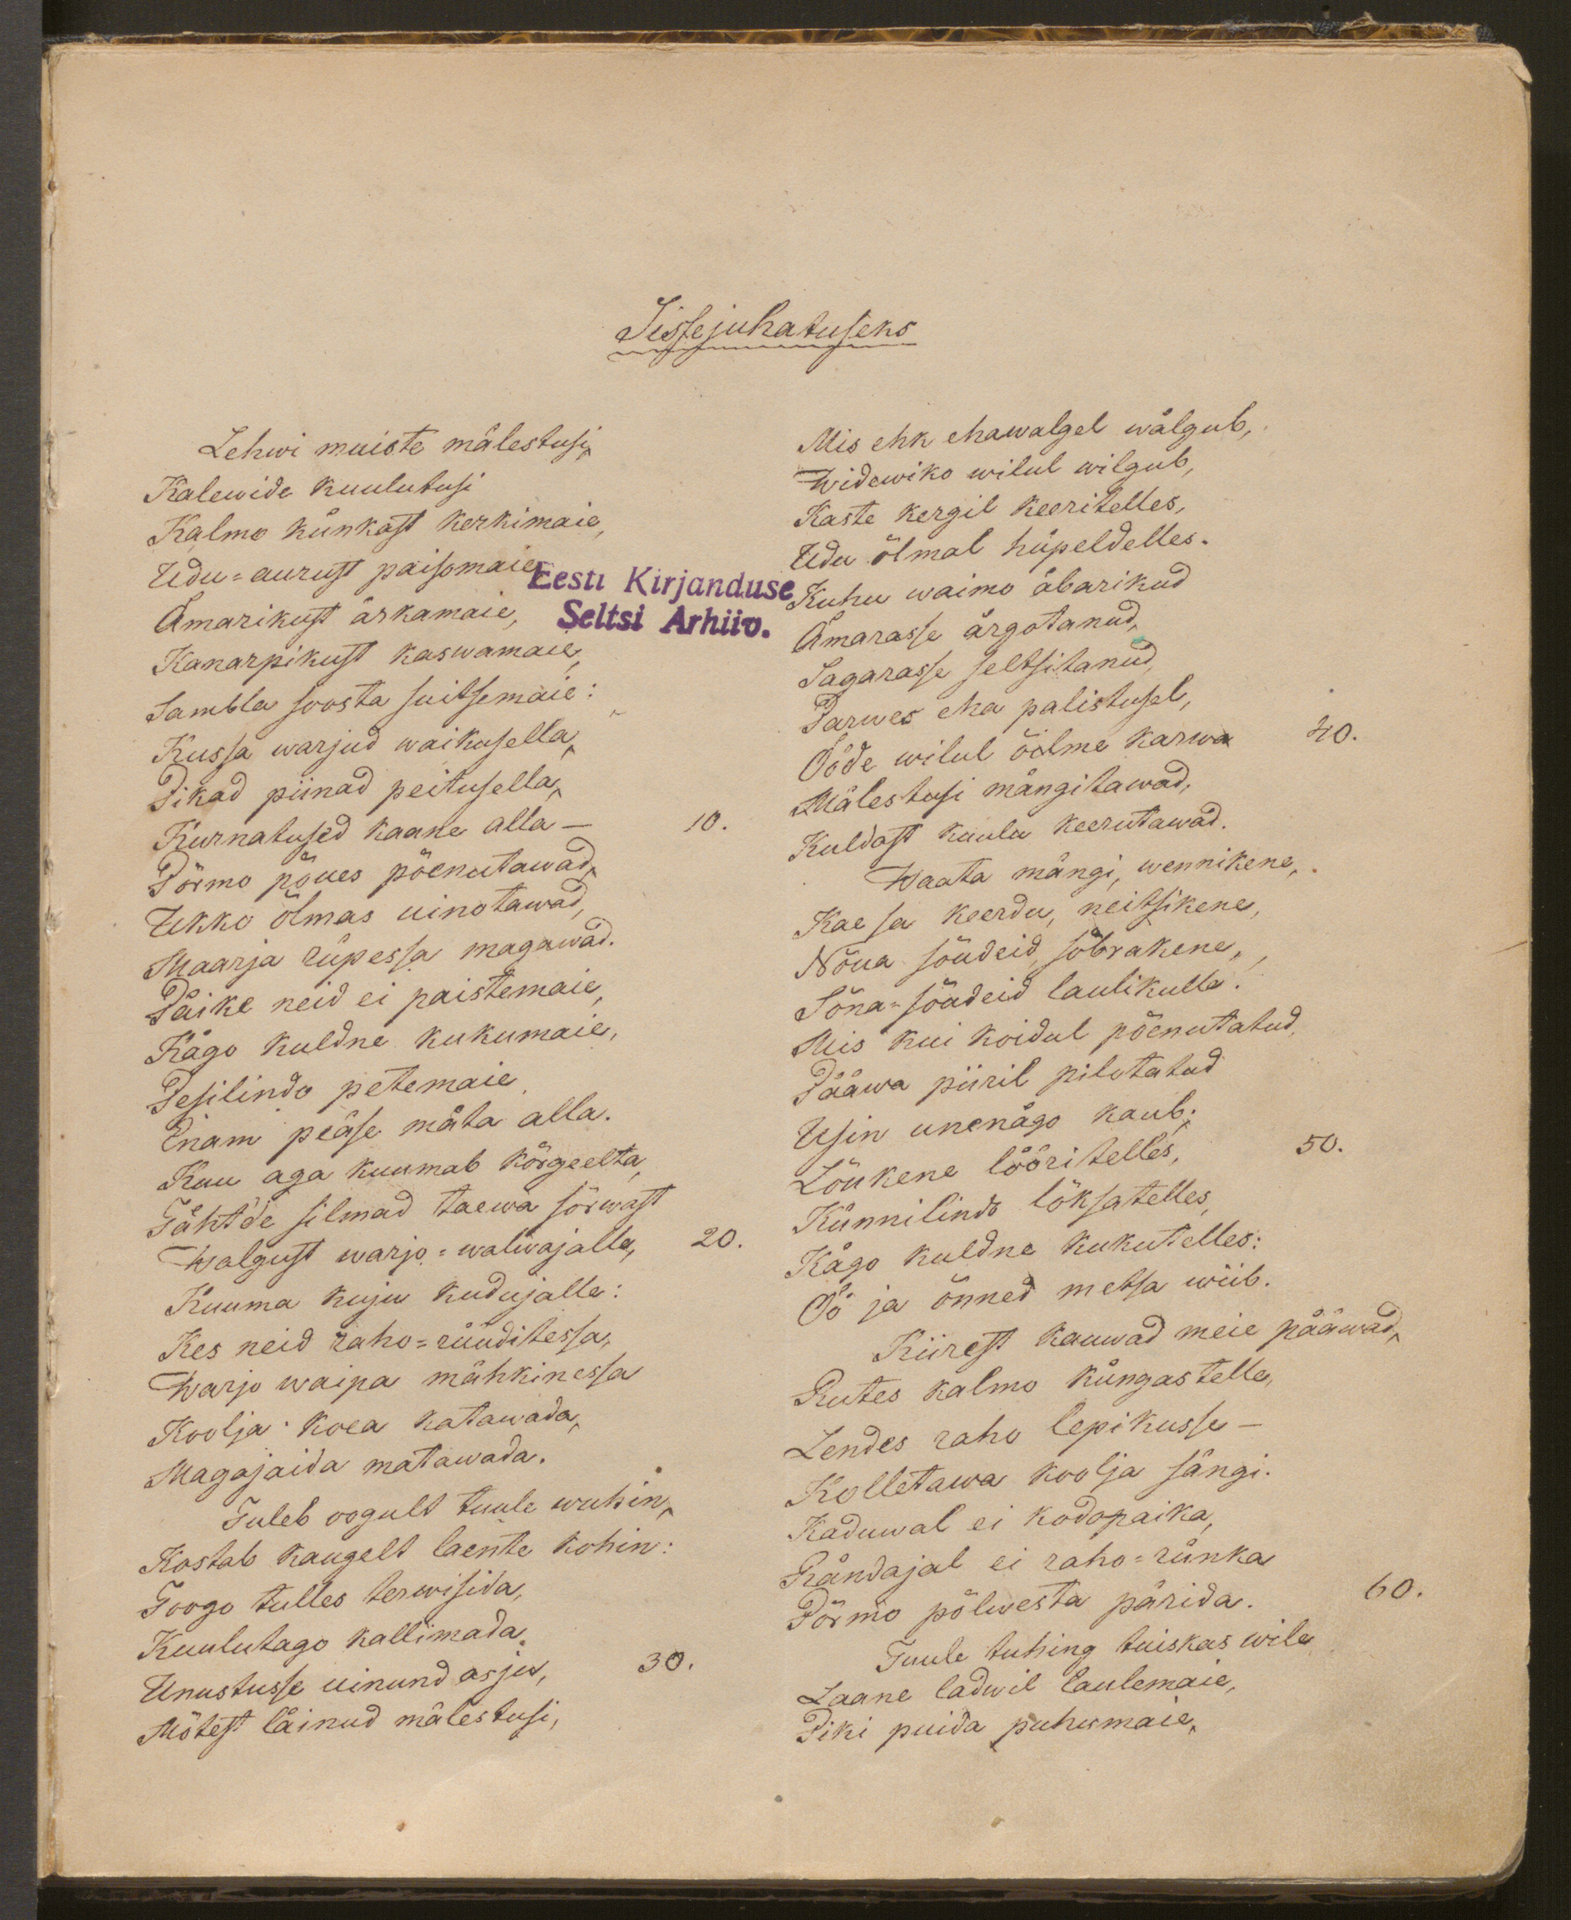 Sissejuhatuseks
Lehwi muiste mälestusi,
Kalewide kuulutusi
Kalmo künkast kerkimaie,
Udu-aurust paisomaie,
Ämarikust ärkamaie,
Kanarpikust kaswamaie,
Sambla soosta suitsemaie:
Kussa warjud waikusella,
Pikad piinad peitusella,
Kurnatused kaane alla — 10.
Põrmo põues põenutawad,
Ukko õlmas uinotawad,
Maarja rüpessa magawad.
Päike neid ei paistemaie,
Kägo kuldne kukumaie,
Pesilindo petemaie
Enam pease mäta alla.
Kuu aga kuumab kõrgeelta,
Tähtde silmad taewa sõrwast
Walgust warjo-walwajalle, 20.
Kuuma kuju kudujalle:
Kes neid raho-rüüditessa,
Warjo waipa mähkinessa
Koolja koea katawada,
Magajaida matawada.
Tuleb oogult tuule wuhin,
Kostab kaugelt laente kohin:
Toogo tulles terwisida,
Kuulutago kallimada
Unustusse uinund asju, 30.
Mõtest läinud mälestusi,
Eesti Kirjanduse
Seltsi Arhiiv.
Mis ehk ehawalgel wälgub,
Widewiko wilul wilgub,
Kaste kergil keeritelles,
Udu õlmal hüpeldelles.
Kuhu waimo äbarikud
Ämarasse ärgotanud,
Sagarasse seltsitanud,
Parwes eha palistusel,
Ööde wilul õilme karwa 40.
Mälestusi mängitawad,
Kuldast kuulu keerutawad.
Waata mängi, wennikene,
Kae sa keerdu, neitsikene,
Nõua sõudeid, sõbrakene,
Sõna-sõudeid laulikulle.
Mis kui koidul põenutatud,
Pääwa piiril pilotatud
Usin unenägo kaub;
Lõukene lööritelles, 50.
Künnilindo lõksatelles,
Kägo kuldne kukutelles:
Öö ja õnned metsa wiib.
Kiirest kauwad meie pääwad,
Rutes kalmo küngastelle,
Lendes raho lepikusse —
Kolletawa koolja sängi.
Kaduwal ei kodopaika,
Rändajal ei raho-rünka
Põrmo põlwesta pärida. 60.
Tuule tuhing tuiskas wile
Laane ladwil laulemaie,
Piki puida puhumaie,